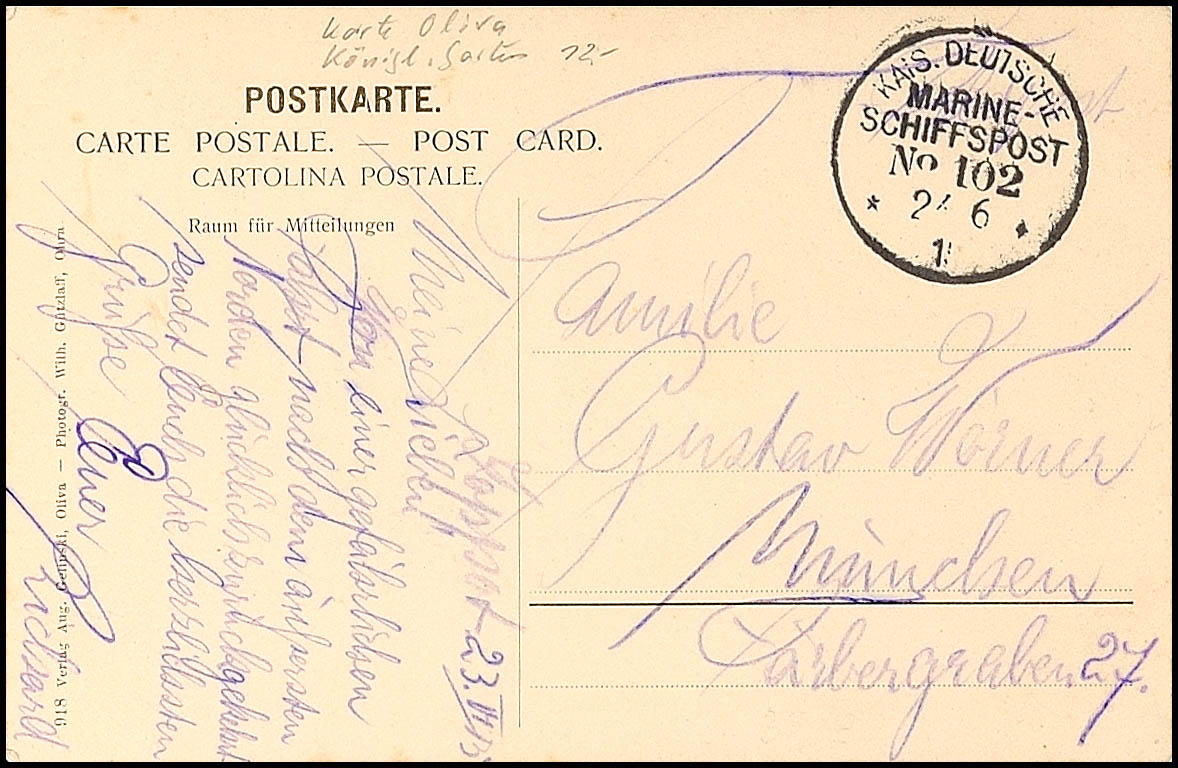 Karte Oliva
Königl. Garten 12.-
POSTKARTE.
CARTE POSTALE. — POST CARD.
CARTOLINA POSTALE.
Raum für Mitteilungen
KAIS. DEUTSCHE
MARINE-
SCHIFFSPOST
No 102
* 2 6 *
1
Zoppot 23.VI 13
Meine Lieben
Von einer gefährlichen
Fahrt nach dem äußersten
Norden glücklich zurückgekehrt
sendet Euch die herzlichsten
Grüße Euer
Richard
Familie
Gustav Wörner
München
Färbergraben 27.
918 Verlag Aug. Gelinski, Oliva — Photogr. Wilh. Gützlaff, Ohra